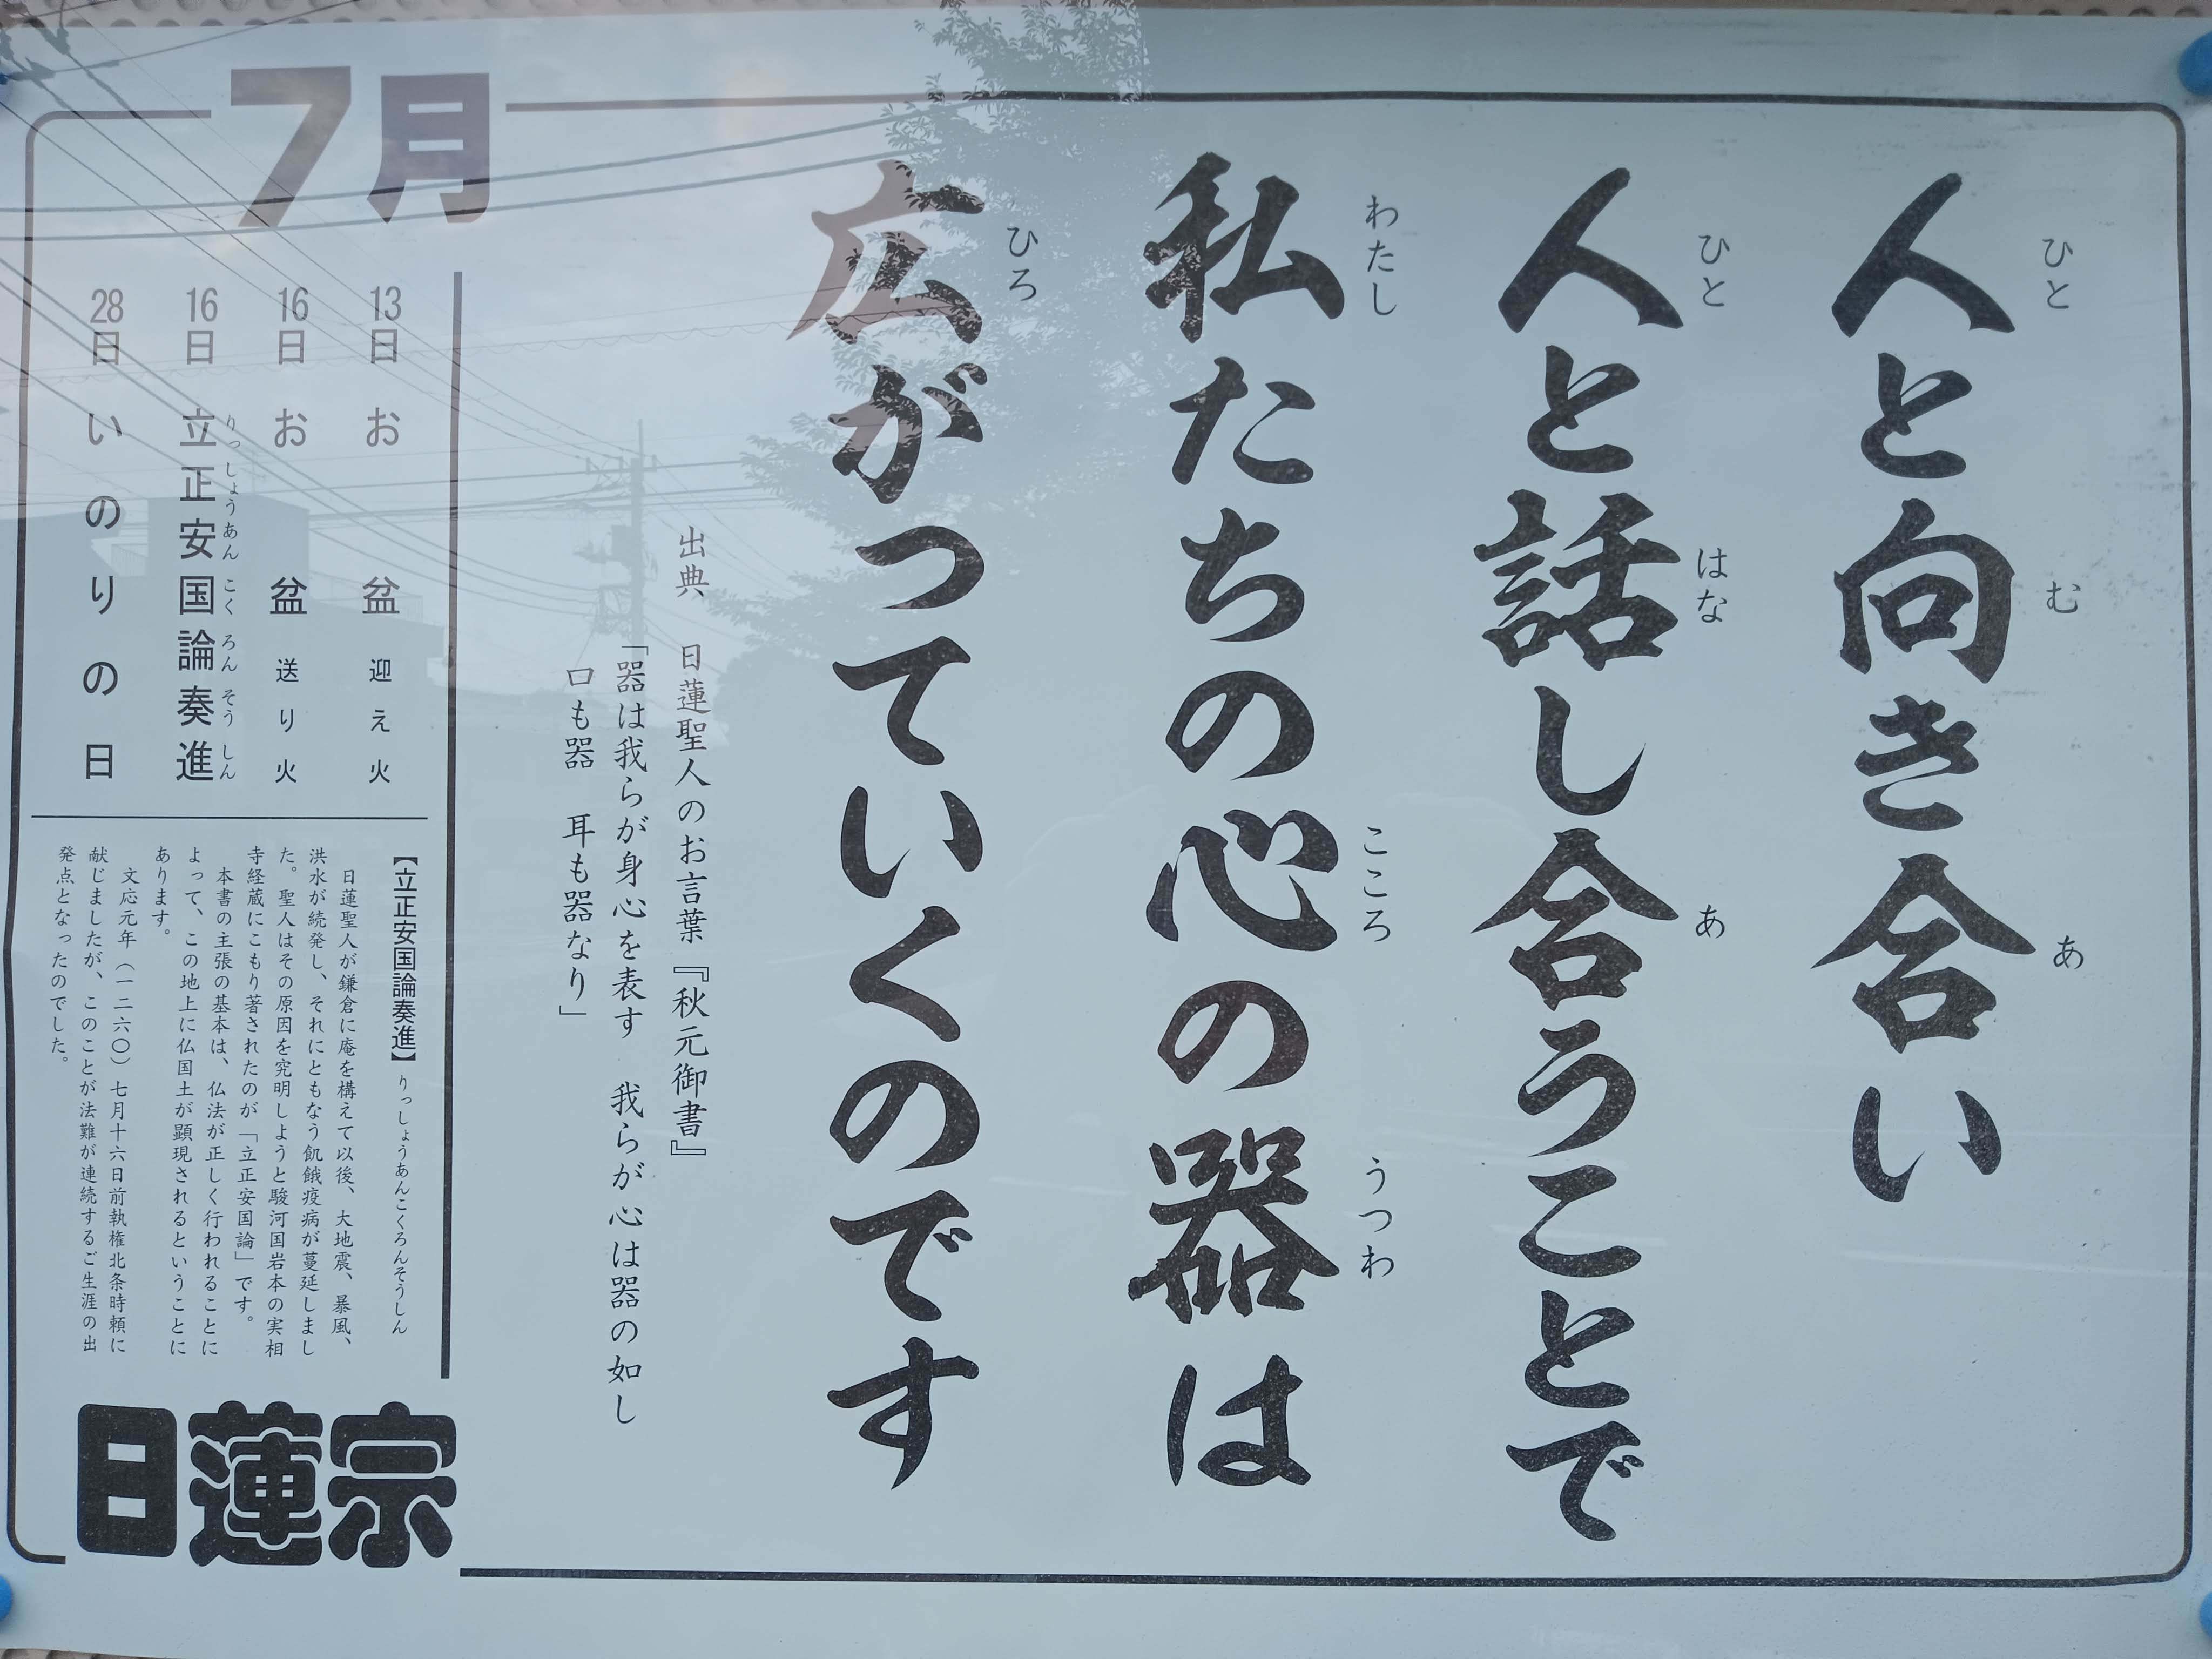 人と向き合い
人と話し合うことで
私たちの心の器は
広がっていくのです
出典 日蓮聖人のお言葉『秋元御書』
「器は我らが身心を表す 我らが心は器の如し
口も器 耳も器なり」
7月
13日 お盆 迎え火
16日 お盆 送り火
16日 立正安国論奏進
28日 いのりの日
【立正安国論奏進】りっしょうあんこくろんそうしん
日蓮聖人が鎌倉に庵を構えて以後、大地震、暴風、
洪水が続発し、それにともなう飢餓疫病が蔓延しまし
た。聖人はその原因を究明しようと駿河国岩本の実相
寺経蔵にこもり著されたのが「立正安国論」です。
本書の主張の基本は、仏法が正しく行われることに
よって、この地上に仏国土が顕現されるということに
あります。
文応元年（一二六〇）七月十六日前執権北条時頼に
献じましたが、このことが法難が連続するご生涯の出
発点となったのでした。
日蓮宗